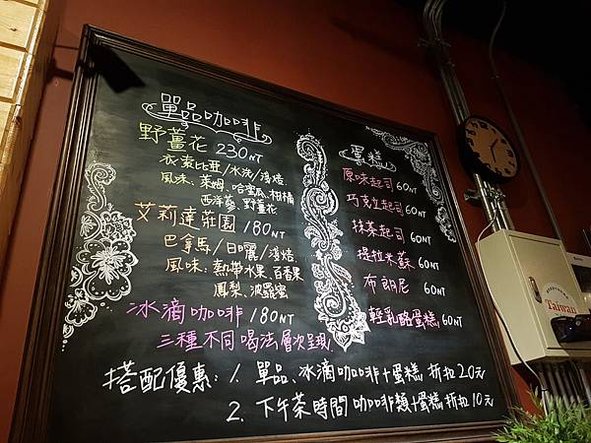 單品咖啡
野薑花 230NT
衣索比亞/水洗/淺焙
風味:萊姆、哈密瓜、柑橘
西洋蔘、野薑花
艾莉達莊園 180NT
巴拿馬/日曬/淺焙
風味:熱帶水果、百香果
鳳梨、波羅蜜
冰滴咖啡 180NT
三種不同喝法層次呈現
蛋糕
原味起司 60NT
巧克力起司 60NT
抹茶起司 60NT
提拉米蘇 60NT
布朗尼 60NT
輕乳酪蛋糕 60NT
搭配優惠: 1. 單品、冰滴咖啡+蛋糕 折扣20元
2. 下午茶時間 咖啡類+蛋糕 折扣10元
Taiwan